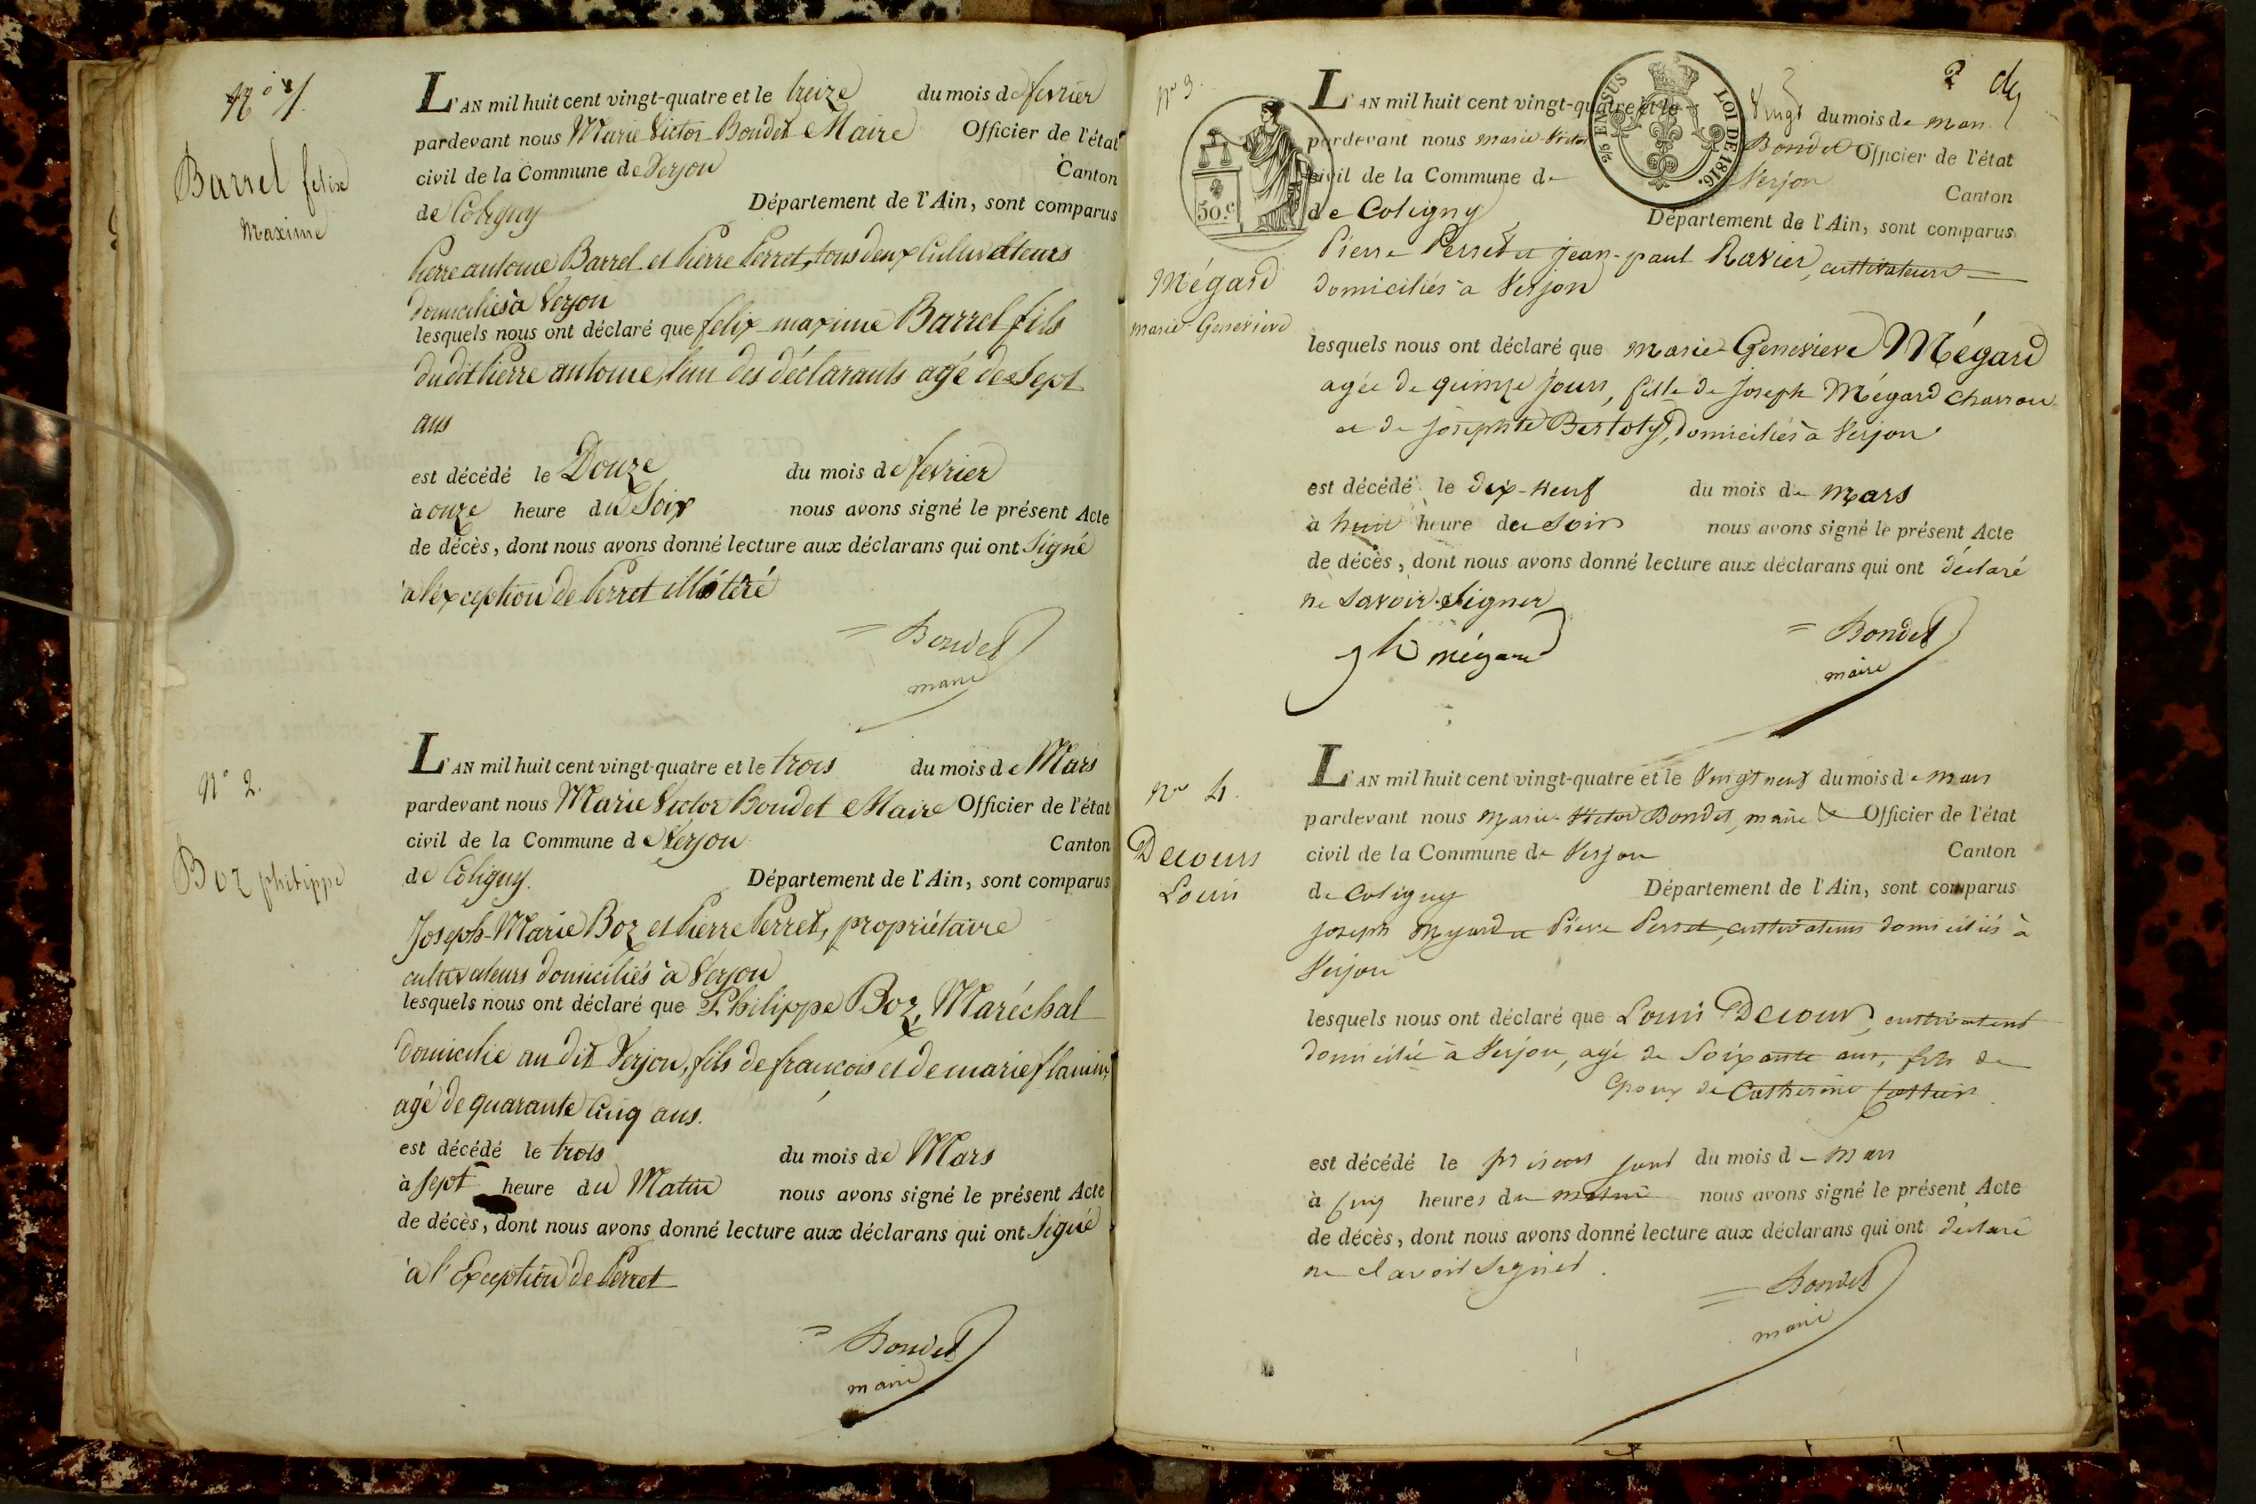 N° 1.
Barrel felix
Maxime
L'AN mil huit cent vingt-quatre et le treize du mois de fevrier
pardevant nous Marie Victor Bondet Maire Officier de l'état
civil de la Commune de Verjon Canton
de Coligny Département de l'Ain, sont comparus
Pierre antoine Barrel et Pierre Perret, tous deux Cultivateurs
domiciliés à Verjon
lesquels nous ont déclaré que felix maxime Barrel fils
du dit Pierre antoine, l'un des déclarants agé de Sept
ans
est décédé le Douze du mois de fevrier
à onze heure du Soir nous avons signé le présent Acte
de décès, dont nous avons donné lecture aux déclarans qui ont Signé
à l'exception de Perret illétéré
Bondet
maire
N° 2.
Boz philippe
L'AN mil huit cent vingt-quatre et le trois du mois de Mars
pardevant nous Marie Victor Bondet Maire Officier de l'état
civil de la Commune de Verjon Canton
de Coligny. Département de l'Ain, sont comparus
Joseph-Marie Boz et Pierre Perret, propriétaire
cultivateurs domiciliés à Verjon
lesquels nous ont déclaré que Philippe Boz, Maréchal
domicilié au dit Verjon, fils de francois et de marie
agé de quarante Cinq ans.
est décédé le trois du mois de Mars
à sept heure du Matin nous avons signé le présent Acte
de décès, dont nous avons donné lecture aux déclarans qui ont Signé
à l'Exception de Perret
Bondet
maire
2
N° 3.
Mégard
marie Genevieve
50.c
2/5 EN SUS
LOI DE 1816.
L'AN mil huit cent vingt-quatre et le Vingt du mois de mars
pardevant nous marie-Victor Bondet Officier de l'état
civil de la Commune de Verjon Canton
de Coligny Département de l'Ain, sont comparus
Pierre Perret et jean-paul Ravier, cultivateurs
domiciliés à Verjon
lesquels nous ont déclaré que marie Genevieve Mégard
agée de quinze jours, fille de joseph Mégard charron
et de josephte Bertoly, domiciliés à Verjon
est décédé le dix-neuf du mois de mars
à huit heure du soir nous avons signé le présent Acte
de décès, dont nous avons donné lecture aux déclarans qui ont déclaré
ne savoir signer
mégard
Bondet
maire
N° 4.
Decours
Louis
L'AN mil huit cent vingt-quatre et le Vingt neuf du mois de mars
pardevant nous marie Victor Bondet, maire & Officier de l'état
civil de la Commune de Verjon Canton
de Coligny Département de l'Ain, sont comparus
joseph Mégard et Pierre Perret, cultivateurs domiciliés à
Verjon
lesquels nous ont déclaré que Louis Decour, cultivateur
domicilié à Verjon, agé de Soixante ans, fils de
Epoux de Catherine
est décédé le présent jour du mois de mars
à cinq heures du matin nous avons signé le présent Acte
de décès, dont nous avons donné lecture aux déclarans qui ont déclaré
ne savoir signer.
Bondet
maire